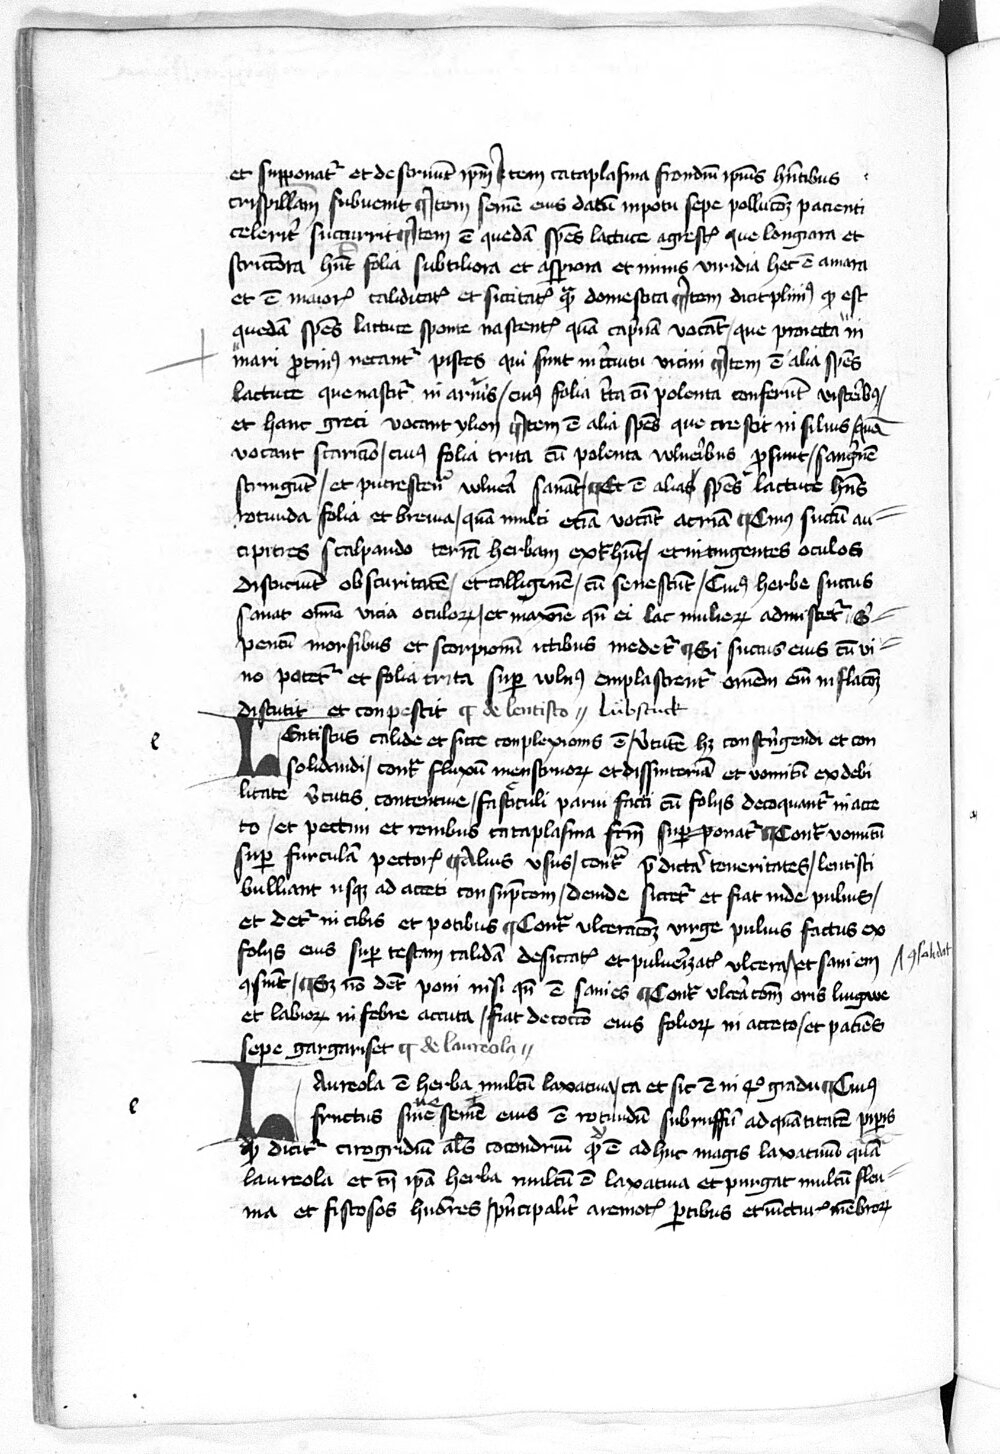 et supponatr et destruunt ipm Item cataplasma frondiu ipius hntibus
crispillam subuenit Item seme eius datu in potu sepe pollucoz pacienti
celeritr succurrit Item e queda spes lactuce agrest que longiora et
strictiora hnt folia subtiliora et aspiora et minus viridia hec e amara
et e maior caliditat et siccitat qua domestica Item dicit plini9 qp est
queda spes lactuce sponte nascent qua caprina vocat / que proiecta in
mari protin9 necantr pisces qui sunt in circuitu vicini Item e alia spes
lactuce que nascitr in aruis / cui9 folia trita cu polenta conferut visceribus /
et hanc greci vocant ylion Item e alia spes que crescit in siluis qua
vocant scaricio / cui9 folia trita cu polenta wlneribus psunt / sanguine
stringut / et putrescen wlnera sanat / Et e alia spes lactuce hns
rotunda folia et breuia / qua multi etia vocat acria Cui9 sucum au=
cipitres scalpando terram herbam extrhunt / et intingentes oculos
discuciunt obscuritate / et calligine / cu senescut / Cui9 herbe succus
sanat omia vicia oculor / et maxie qn ei lac mulier admiscetr Ser=
pentu morsibus et scorpionu ictibus medetr Si succus eius cu vi=
no potetr et folia trita super wln9 emplastrentr omem em inflacoz
discutit et conpescit de lentisco // Lubstuck
Lentiscus calide et sicce conplexionis e / vtute hz constringendi et con
solidandi / contr fluxu menstruor et dissinteria et vomitu ex debi
litate vtutis contentiue / fasciculi parui facti cu folijs decoquantr in ace
to / et pectini et renibus cataplasma fcm superponatr Contr vomitu
super furcula pector Alius vsus / contr pdicta teneritates / lentisci
bulliant usqz ad aceti consupcom / deinde siccetr et fiat inde puluis /
et detr in cibis et potibus Contr vlceracoz virge puluis factus ex
folijs eius super testam calida desiccat et pulueizat vlcera / et saniem
9sumit / Sz no det poni nisi qn e sanies Contr vlceracom oris lingwe
et labior in febre accuta / fiat decoctio eius folior in aceto / et paciens
sepe gargariset de laureola //
Laureola e herba multu laxatiua / ca et sic e in 4 gradu Cui9
fructus siue seme eius e rotundu subruffu ad quantitate piperis
qp dicitr cirogridiu als cocondriu qp e adhuc magis laxatiuu qua
laureola et tn ipa herba multu e laxatiua et purgat multu fleu=
ma et fiscosos humores / principalitr a remot partibus et iunctur membror
9solidat
e
e